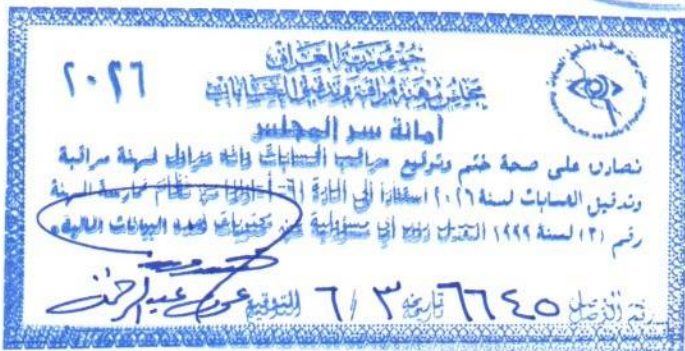 جمهورية العراق
مجلس مهنة مراقبة وتدقيق الحسابات
٢٠٢٦
أمانة سر المجلس
نصادق على صحة ختم وتوقيع مراقب الحسابات وانه مزاول لمهنة مراقبة
وتدقيق الحسابات لسنة ٢٠٢٦ استناداً الى المادة
نظام ممارسة المهنة
رقم (٣) لسنة ١٩٩٩ المعدل دون أي مسؤولية عن محتويات هذه البيانات المالية.
رقم الوصل ٦٦٤٥ تاريخه ٣ / ٦ التوقيع